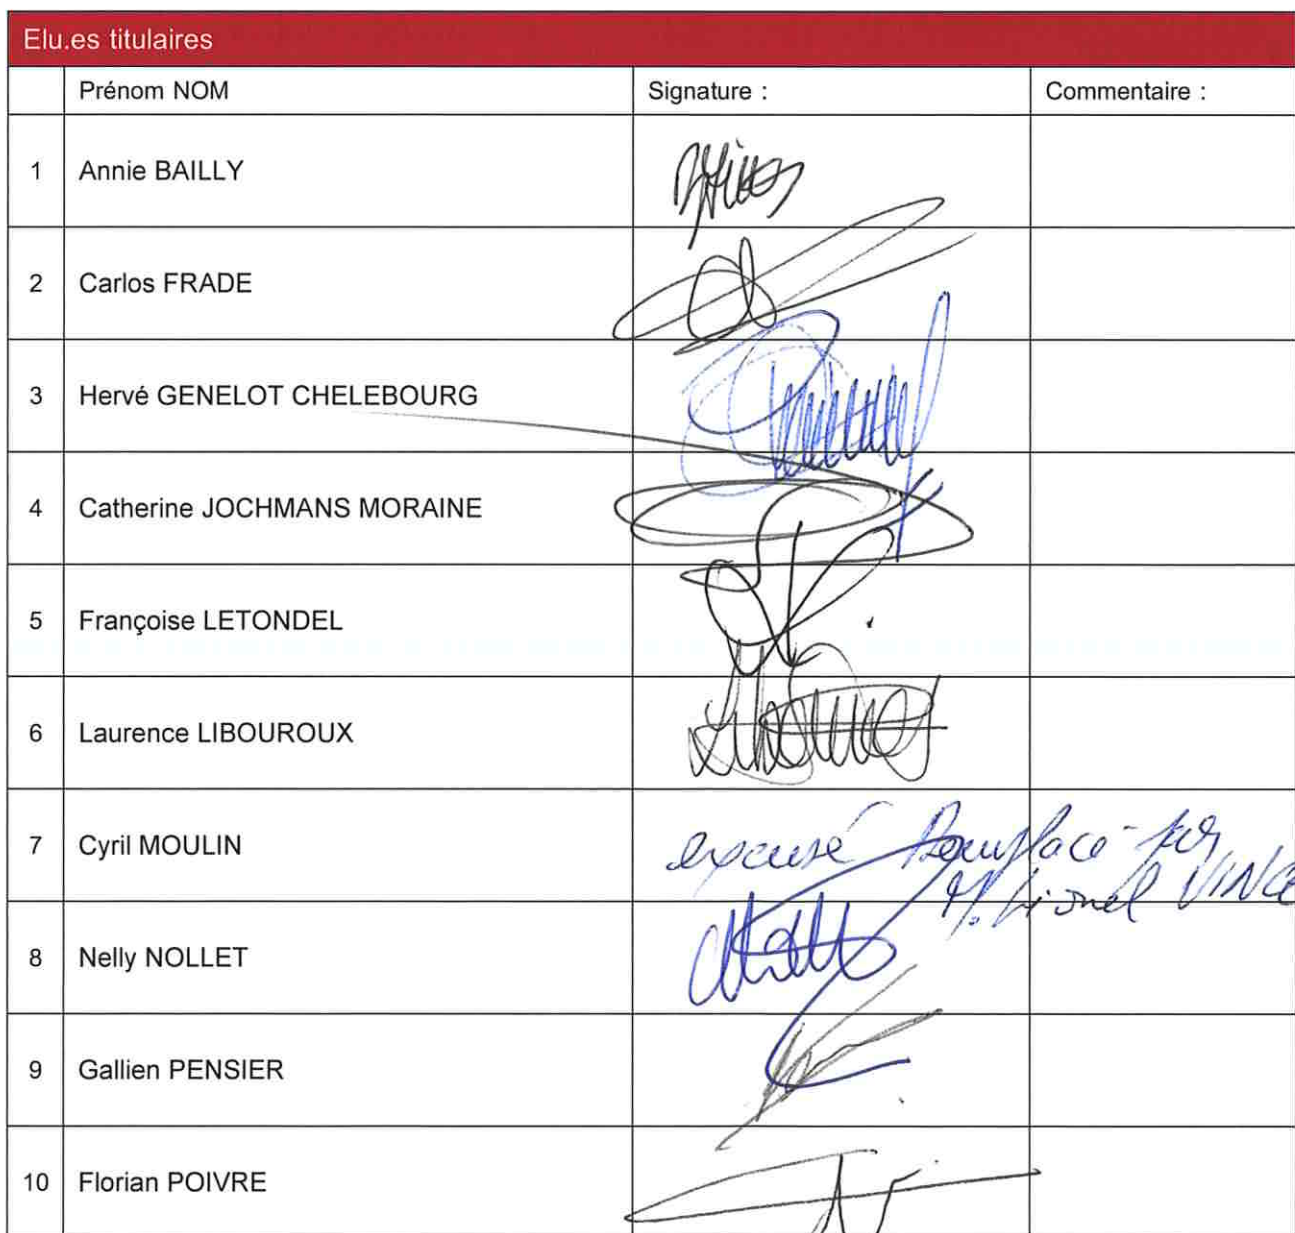 Elu.es titulaires
Prénom NOM Signature : Commentaire :
1 Annie BAILLY
2 Carlos FRADE
3 Hervé GENELOT CHELEBOURG
4 Catherine JOCHMANS MORAINE
5 Françoise LETONDEL
6 Laurence LIBOUROUX
7 Cyril MOULIN excusé Remplacé par
M. Lionel VINCE
8 Nelly NOLLET
9 Gallien PENSIER
10 Florian POIVRE